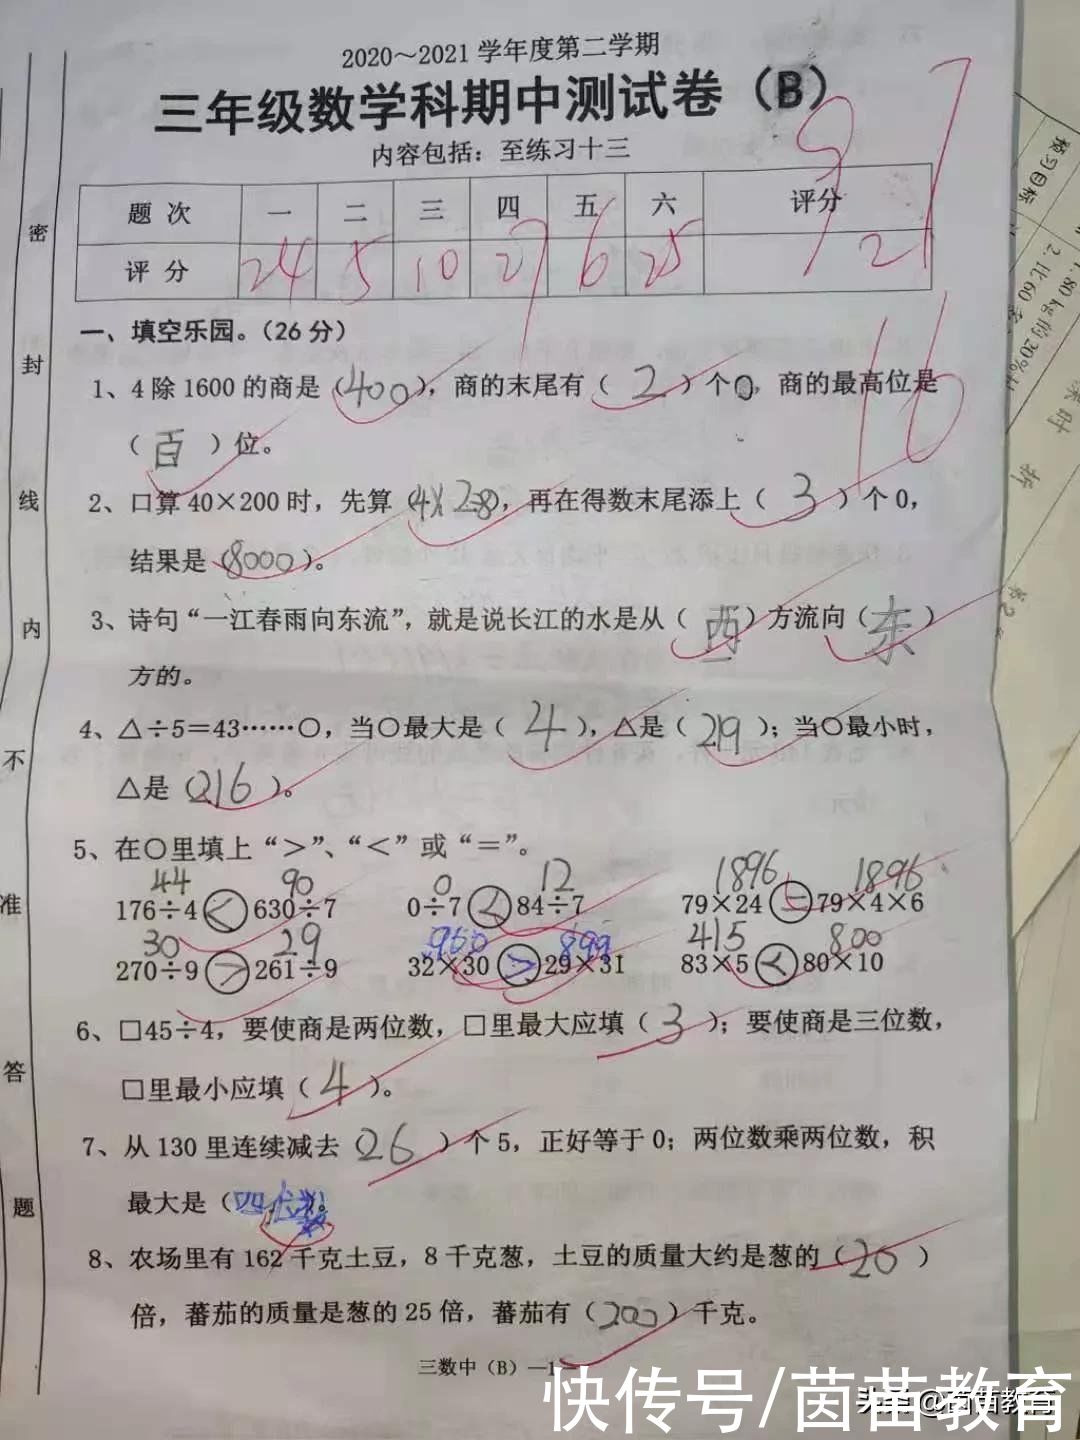 2020～2021学年度第二学期
三年级数学科期中测试卷（B）
内容包括：至练习十三
题次 一 二 三 四 五 六 评分
评分 24 5 10 27 6 25
97
一、填空乐园。（26分）
1、4除1600的商是（400），商的末尾有（2）个0，商的最高位是
（百）位。
2、口算40×200时，先算（4×2=8），再在得数末尾添上（3）个0，
结果是（8000）。
3、诗句“一江春雨向东流”，就是说长江的水是从（西）方流向（东）
方的。
4、△÷5＝43……〇，当〇最大是（4），△是（219）；当〇最小时，
△是（216）。
5、在〇里填上“＞”、“＜”或“＝”。
44 90 0 12 1896 1896
176÷4＜630÷7 0÷7＜84÷7 79×24＝79×4×6
30 29 960 899 415 800
270÷9＞261÷9 32×30＞29×31 83×5＜80×10
6、□45÷4，要使商是两位数，□里最大应填（3）；要使商是三位数，
□里最小应填（4）。
7、从130里连续减去（26）个5，正好等于0；两位数乘两位数，积
最大是（四位数）。
8、农场里有162千克土豆，8千克葱，土豆的质量大约是葱的（20）
倍，蕃茄的质量是葱的25倍，蕃茄有（200）千克。
三数中（B）—1—
密
封
线
内
不
准
答
题
预习目标
1.80kg的20%
2.比60多
快传号/茵苗教育
头条@茵苗教育